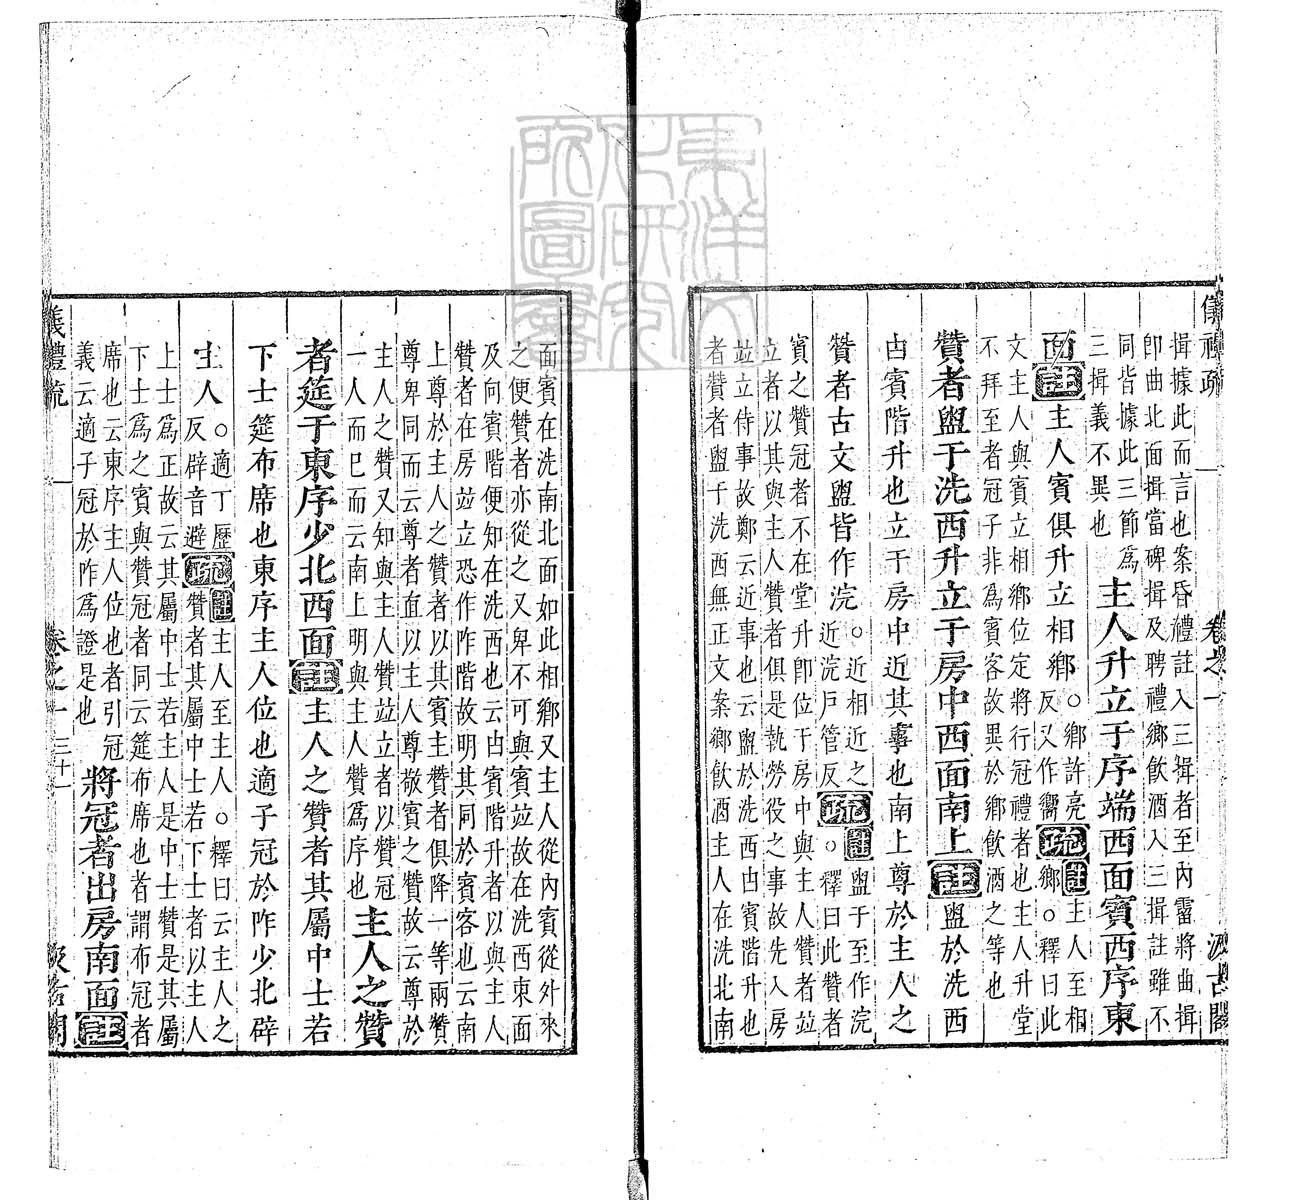 儀禮疏 卷之一 汲古閣
揖據此而言也案昏禮註入三揖者至內霤將曲揖
卽曲北面揖當碑揖及聘禮鄉飲酒入三揖註雖不
同皆據此三節爲
三揖義不異也
主人升立于序端西面賓西序東
面註主人賓俱升立相鄉
○鄉許亮
反又作嚮
疏註主人至相
鄉○釋曰此
文主人與賓立相鄉位定將行冠禮者也主人升堂
不拜至者冠子非爲賓客故異於鄉飲酒之等也
贊者盥于洗西升立于房中西面南上註盥於洗西
由賓階升也立于房中近其事也南上尊於主人之
贊者古文盥皆作浣
○近相近之
近浣戶管反
疏註盥于至作浣
○釋曰此贊者
賓之贊冠者不在堂升卽位于房中與主人贊者並
立者以其與主人贊者俱是執勞役之事故先入房
並立待事故鄭云近事也云盥於洗西由賓階升也
者贊者盥于洗西無正文案鄉飲酒主人在洗北南
面賓在洗南北面如此相鄉又主人從內賓從外來
之便贊者亦從之又卑不可與賓並故在洗西東面
及向賓階便知在洗西也云由賓階升者以與主人
贊者在房並立恐作阼階故明其同於賓客也云南
上尊於主人之贊者以其賓主贊者俱降一等兩贊
尊卑同而云尊者直以主人尊敬賓之贊故云尊於
主人之贊又知與主人贊並立者以贊冠
一人而已而云南上明與主人贊爲序也
主人之贊
者筵于東序少北西面註主人之贊者其屬中士若
下士筵布席也東序主人位也適子冠於阼少北辟
主人
○適丁歷
反辟音避
疏註主人至主人○釋曰云主人之
贊者其屬中士若下士者以主人
上士爲正故云其屬中士若主人是中士贊是其屬
下士爲之賓與贊冠者同云筵布席也者謂布冠者
席也云東序主人位也者引冠
義云適子冠於阼爲證是也
將冠者出房南面註
儀禮疏 卷之一 三十一 汲古閣